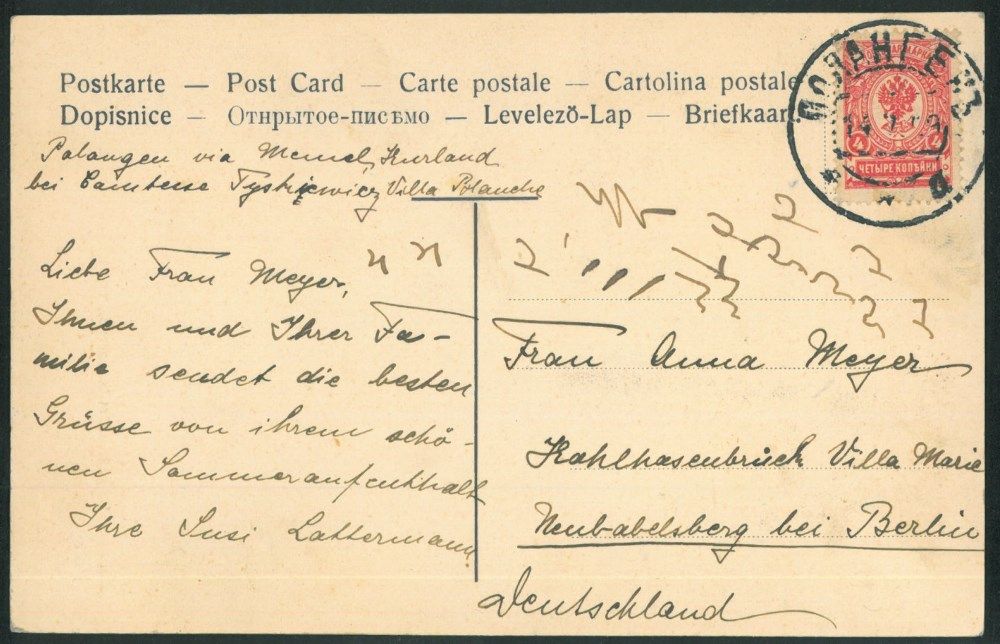 Postkarte — Post Card — Carte postale — Cartolina postale
Dopisnice — Отнрытое-письмо — Levelezŏ-Lap — Briefkaart
ПОЛАНГЕНЪ
ЧЕТЫРЕ КОПѢЙКИ
4 4
Palangen via Memel, Kurland
bei Comtesse Tyszkiewicz Villa Blanche
Liebe Frau Meyer,
Ihnen und Ihrer Fa-
milie sendet die besten
Grüsse von ihrem schö-
nen Sommeraufenthalt
Ihre Susi Lattermann
Frau Anna Meyer
Kohlhasenbrück Villa Marie
Neubabelsberg bei Berlin
Deutschland